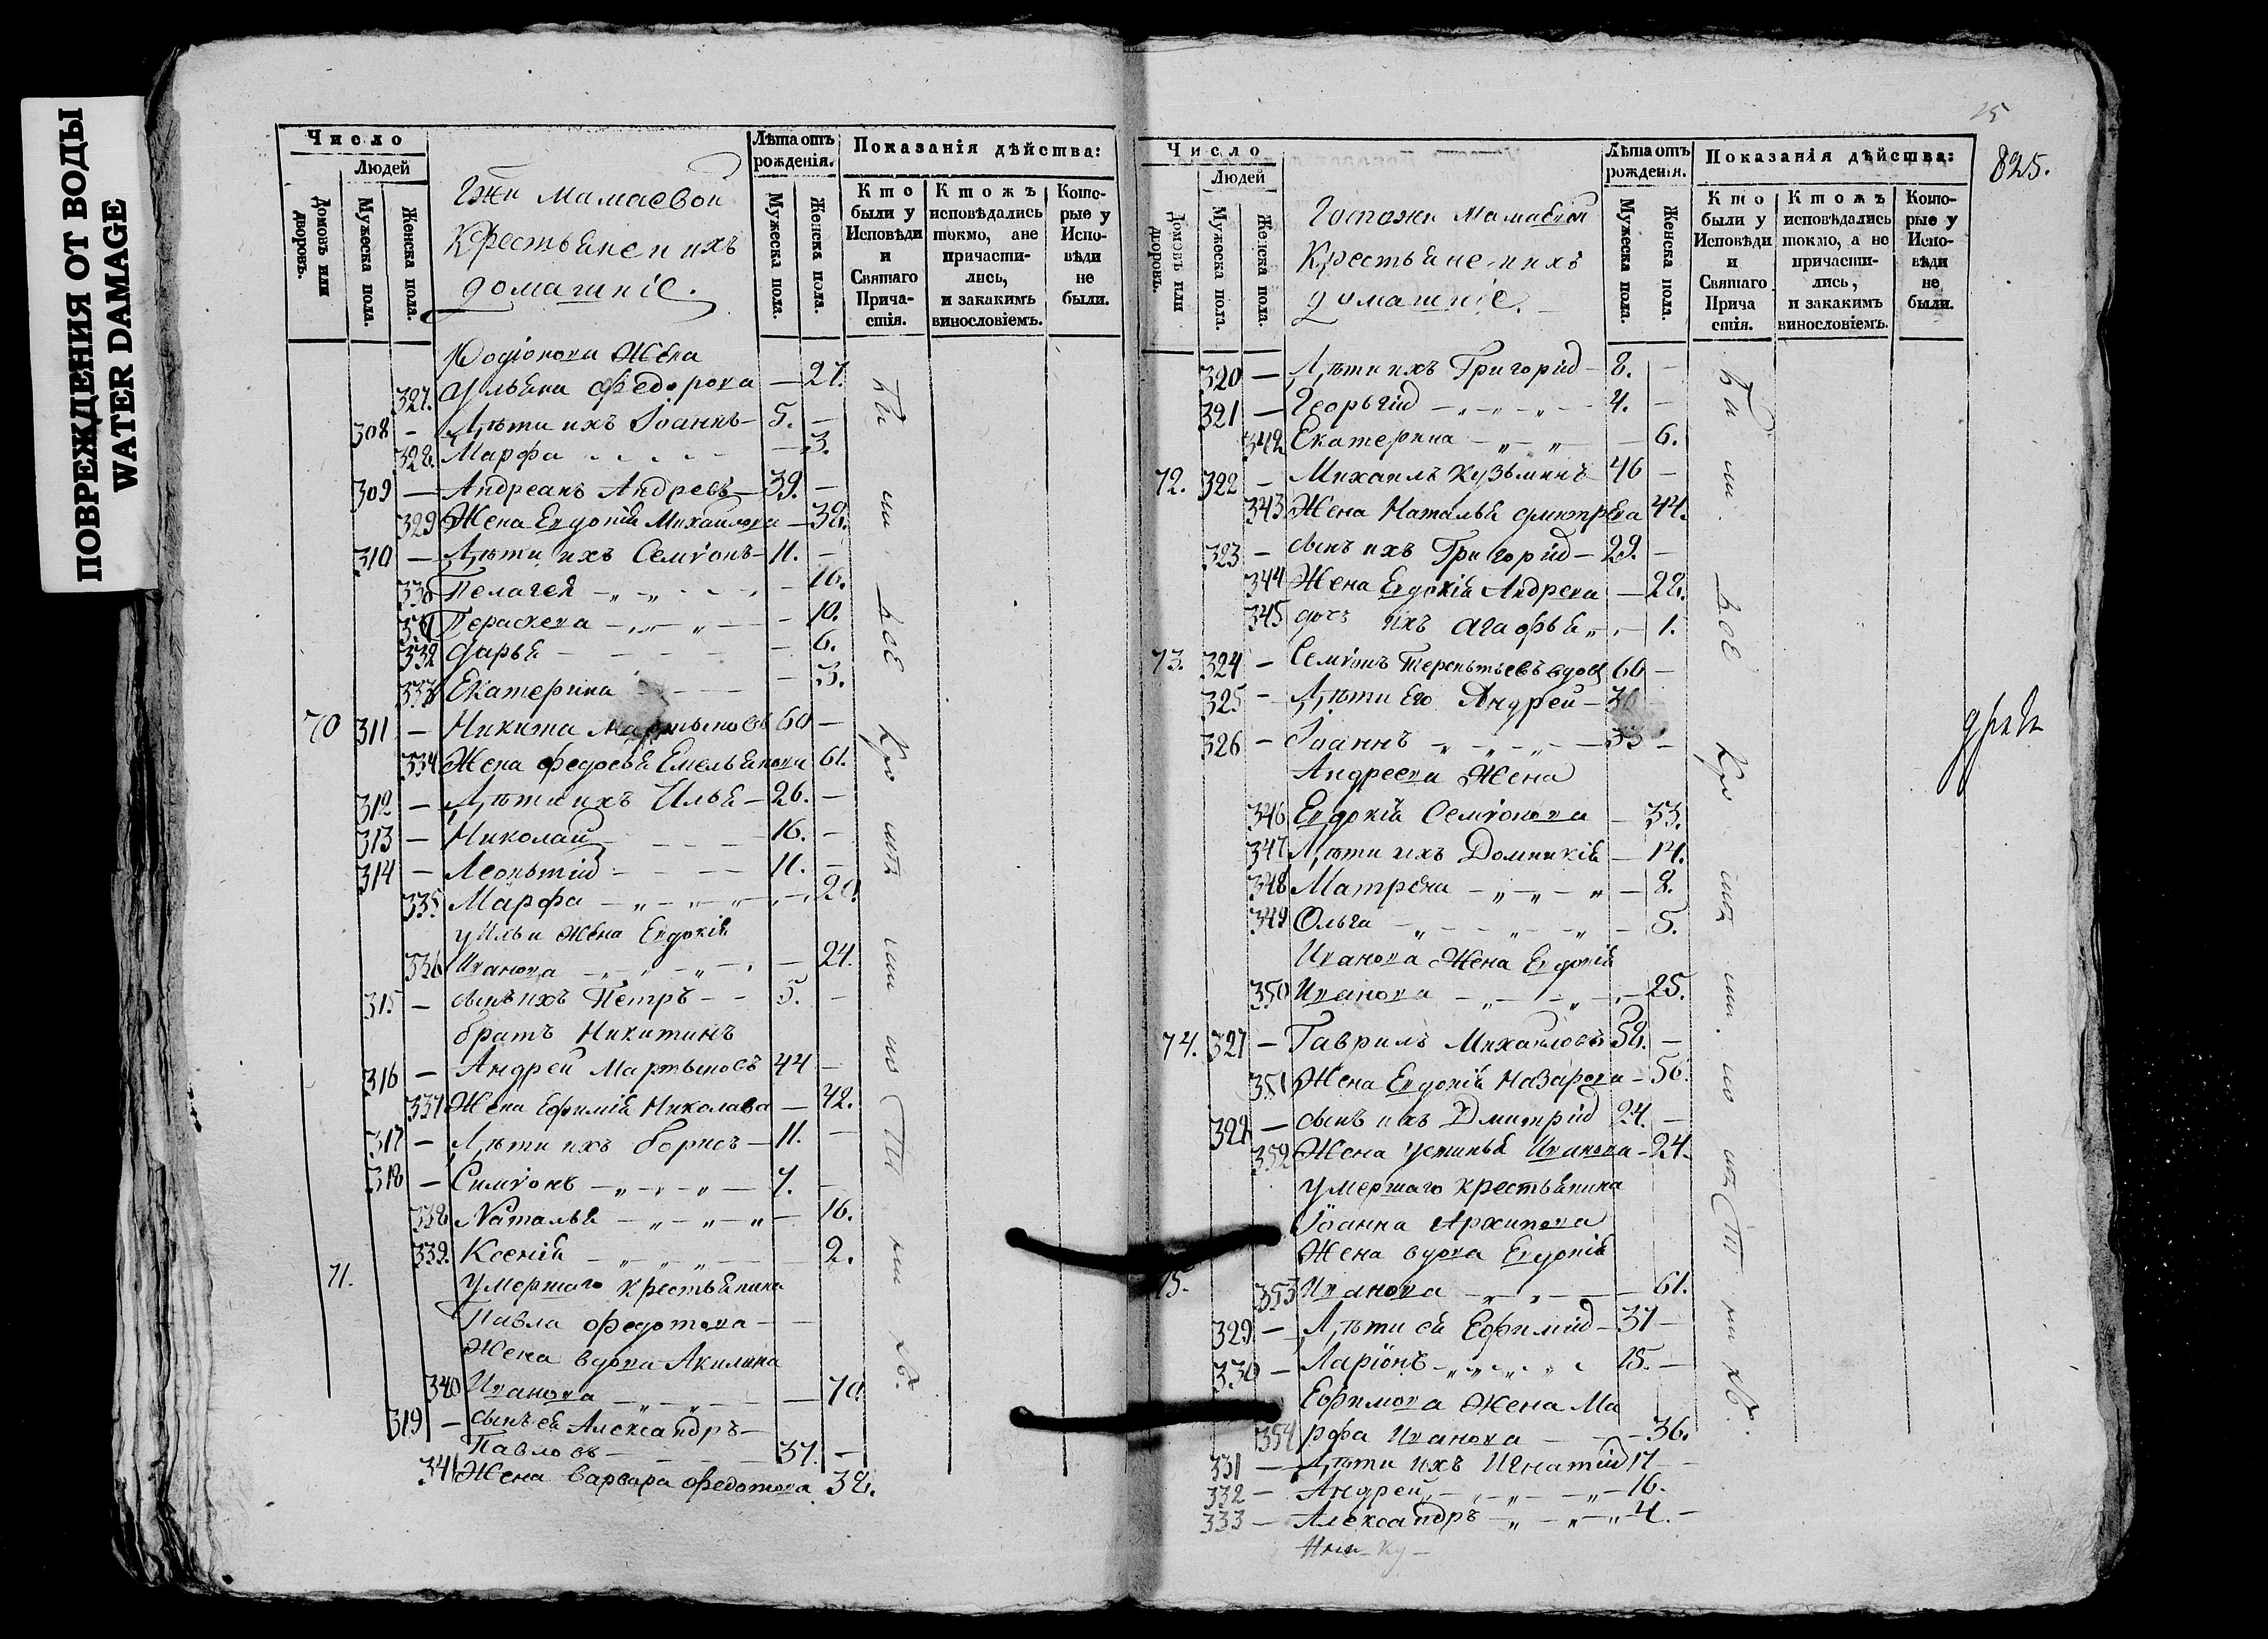 ПОВРЕЖДЕНИЯ ОТ ВОДЫ
WATER DAMAGE
Число
Людей
Домовъ или дворовъ.
Мужеска пола.
Женска пола.
Гжи Мамаевой
Крестьяне и ихъ
домашніе.
Лѣта отъ рожденія.
Мужеска пола.
Женска пола.
Показанія дѣйства:
Кто были у Исповѣди и Святаго Причастія.
Ктожъ исповѣдались токмо, а не причастились, и за какимъ винословіемъ.
Которые у Исповѣди не были.
Родіонова жена
327. Ульяна Федорова — 27.
308 — Дѣти ихъ Іоаннъ — 5. —
328. Марфа — 3.
309 — Андреанъ Андреевъ — 39. —
329 Жена Евдокія Михаилова — 38.
310 — Дѣти ихъ Семіонъ — 11. —
330 Пелагея — 16.
331 Параскева — 10.
332 Дарья — 6.
333 Екатерина — 3.
70 311 — Никита Мартыновъ 60 —
334 Жена Федосья Емельянова 61.
312 — Дѣти ихъ Илья — 26. —
313 — Николай 16. —
314 — Леонтій 11. —
335 Марфа — 20.
у Ильи жена Евдокія
336 Иванова — 24.
315 — сынъ ихъ Петръ — 5. —
братъ Никитинъ
316 — Андрей Мартыновъ 44 —
337 Жена Ефимія Николаева — 42.
317 — Дѣти ихъ Борисъ — 11. —
318 — Симіонъ — 7. —
338 Наталья — 16.
339. Ксенія — 2.
71. умершаго крестьянина
Павла Федотова
жена вдова Акилина
340 Иванова — 70.
319 — сынъ ея Александръ —
Павловъ — 37. —
341 Жена Варвара Федотова 38.
825.
Число
Людей
Домовъ или дворовъ.
Мужеска пола.
Женска пола.
Госпожи Мамаевой
Крестьяне и ихъ
домашніе.
Лѣта отъ рожденія.
Мужеска пола.
Женска пола.
Показанія дѣйства:
Кто были у Исповѣди и Святаго Причастія.
Ктожъ исповѣдались токмо, а не причастились, и за какимъ винословіемъ.
Которые у Исповѣди не были.
320 — Дѣти ихъ Григорій — 8. —
321 — Георьгій — 4. —
342 Екатерина — 6.
72. 322 — Михаилъ Кузьминъ 46 —
343 Жена Наталья 44.
323 — сынъ ихъ Григорій — 29. —
344 Жена Евдокія Андреева — 28.
345 дочь ихъ Агафья — 1.
73. 324 — Семіонъ Терентьевъ вдов 60 —
325 — Дѣти Его Андрей —
326 — Іоаннъ — 33 —
Андреева Жена
346 Евдокія Семіонова — 33.
347 Дѣти ихъ Домникія — 14.
348 Матрена — 8.
349 Ольга — 5.
Иванова Жена Евдокія
350 Иванова — 25.
74. 327 — Гаврилъ Михаиловъ 58. —
351 Жена Евдокія Назарова — 56.
328 — сынъ ихъ Дмитрій 24. —
352 Жена Устинья Иванова — 24.
умершаго крестьянина
Іоанна Архипова
Жена вдова Евдокія
75. 353 Иванова — 61.
329 — Дѣти ея Ефимій — 37 —
330 — Ларіонъ 15. —
Ефимова Жена Ма
354 рфа Иванова — 36.
331 — Дѣти ихъ Игнатій 17 —
332 — Андрей — 16. —
333 — Александръ — 4. —